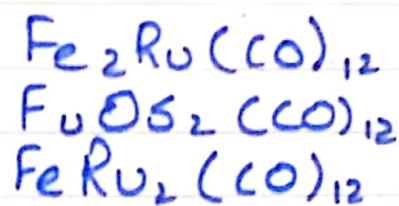 Fe₂Ru(CO)₁₂
FuOs₂(CO)₁₂
FeRu₂(CO)₁₂